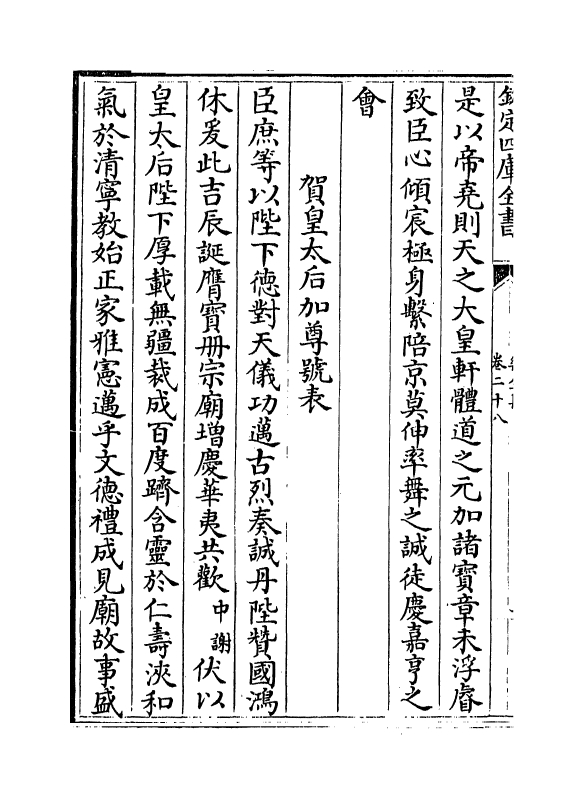 欽定四庫全書
卷二十八
是以帝堯則天之大皇軒體道之元加諸寶章未浮睿
致臣心傾宸極身繫陪京莫伸率舞之誠徒慶嘉亨之
會
賀皇太后加尊號表
臣庶等以陛下德對天儀功邁古烈奏誠丹陛贊國鴻
休爰此吉辰誕膺寶册宗廟增慶華夷共歡中謝伏以
皇太后陛下厚載無疆裁成百度躋含靈於仁壽浹和
氣於清寧教始正家雅憲邁乎文德禮成見廟故事盛